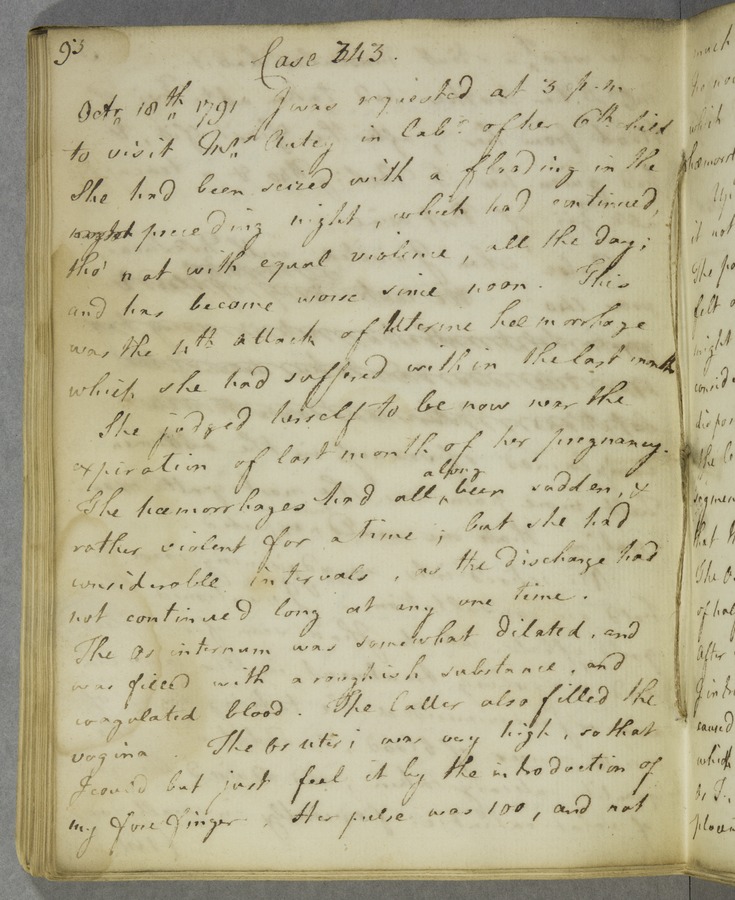 93
Case 343.
Octr. 18th 1791 I was requested at 3 p.m
to visit Mrs Autey in labr. of her 6th child
She had been seized with a flooding in the
preceding night, which had continued,
tho' not with equal violence, all the day;
and has become worse since noon. This
was the 4th attack of Uterine hæmorrhage
which she had suffered within the last month
She judged herself to be now near the
expiration of last month of her pregnancy.
The hæmorrhages had all along been sudden, &
rather violent for a time; but she had
considerable intervals, as the discharge had
not continued long at any one time.
The os internum was somewhat dilated, and
was filled with a roughish substance, and
coagulated blood. The latter also filled the
vagina. The os uteri was very high, so that
I could but just feel it by the introduction of
my fore finger. Her pulse was 100, and not